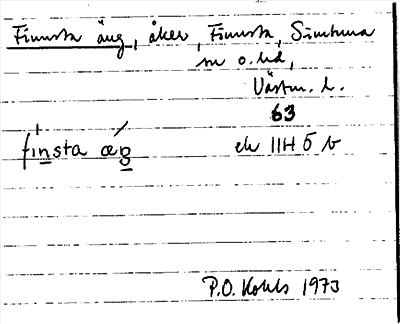 Finnsta äng, åker, Finnsta, Simtuna
sn o. hd,
Västm. l.
63
fìnsta æŋ́ ek 11H 5 b
P.O. Kohls 1973